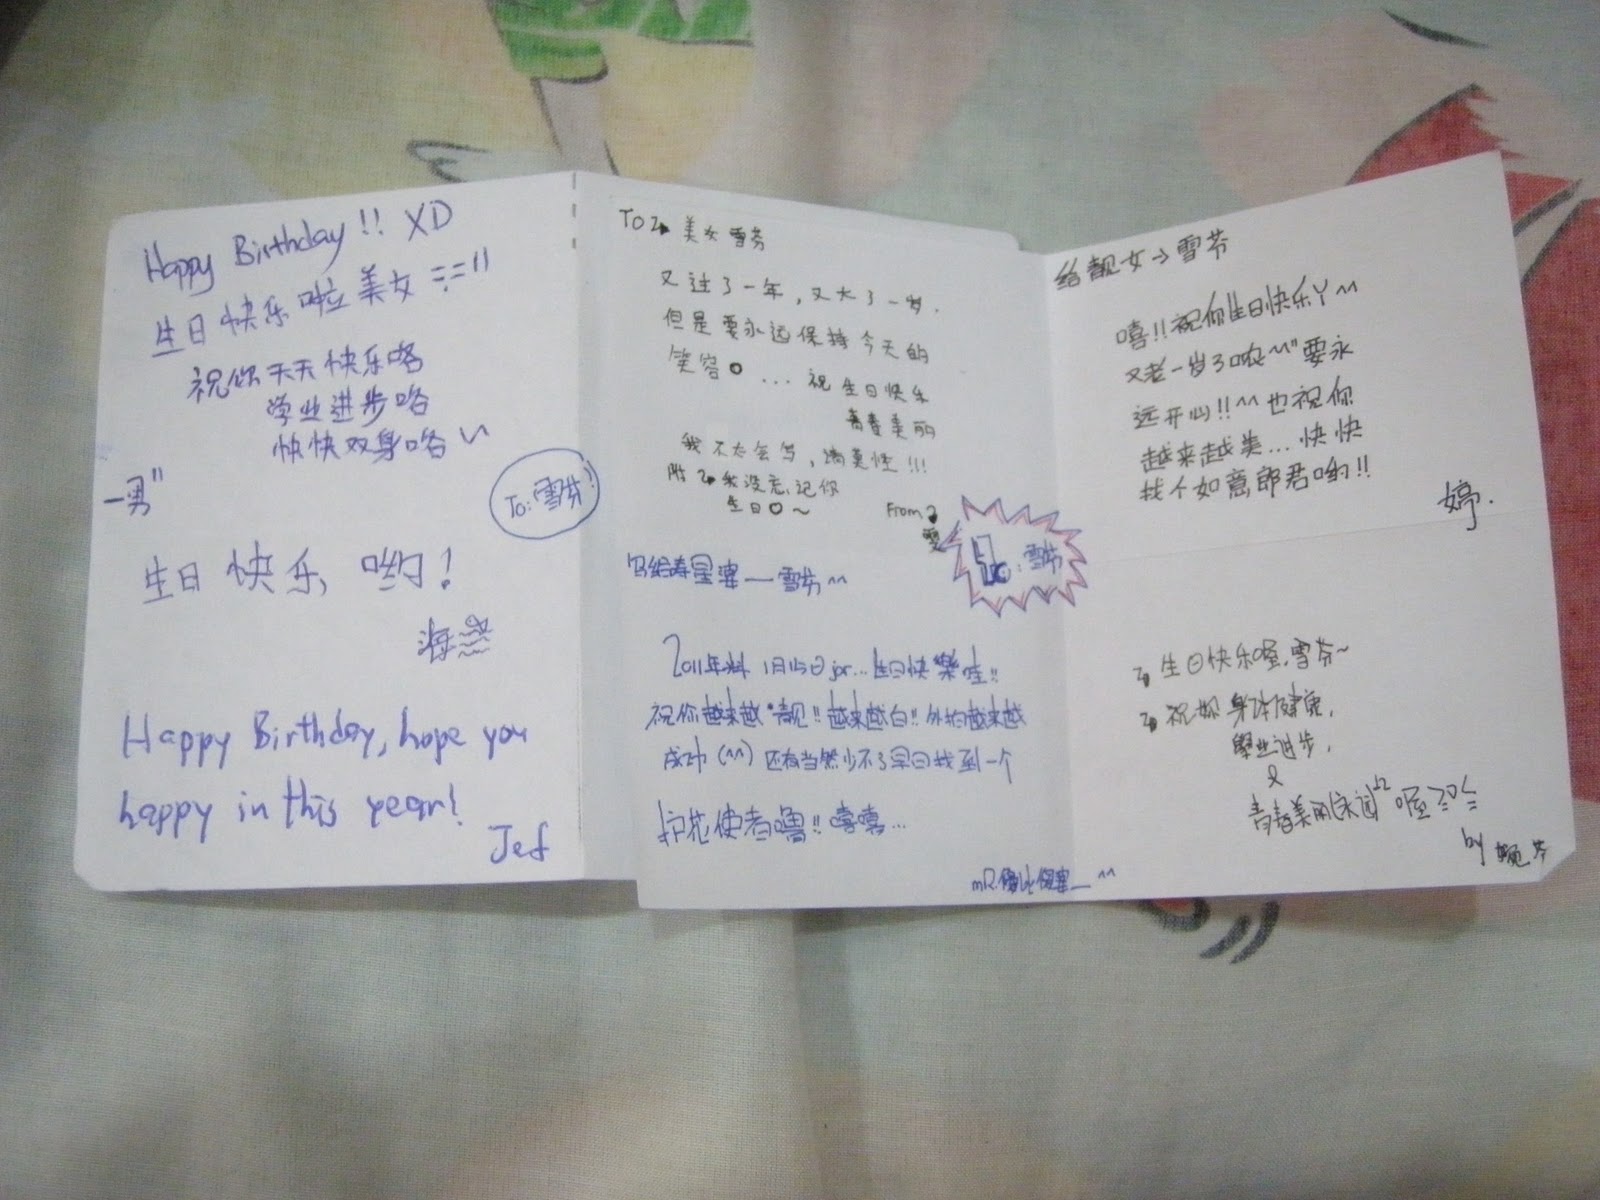 Happy Birthday!! XD
生日快乐啦美女 ==!!
祝你天天快乐咯
学业进步咯
快快双身咯~
一男"
To:雪芬
生日快乐哟!
海
Happy Birthday, hope you
happy in this year!
Jef
TO 美女雪芬
又过了一年,又大了一岁.
但是要永远保持今天的
笑容。... 祝 生日快乐
青春美丽
我不太会写,请见怪!!!
附 我没忘记你
生日 ~
From
雯
写给寿星婆—雪芬^^
To:雪芬
2011年 1月15日jor...生日快樂哇!!
祝你越来越"靓!!越来越白!!外约越来越
成功(^^)还有当然少不了早日找到一个
护花使者噜!!嘻嘻...
给靓女→雪芬
嘻!!祝你生日快乐丫^^
又老一岁了哝^^"要永
远开心!!^^也祝你
越来越美...快快
找个如意郎君哟!!
婷.
生日快乐喔,雪芬~
祝妳身体健康,
學业进步,
又
青春美丽 喔≥0≤
by